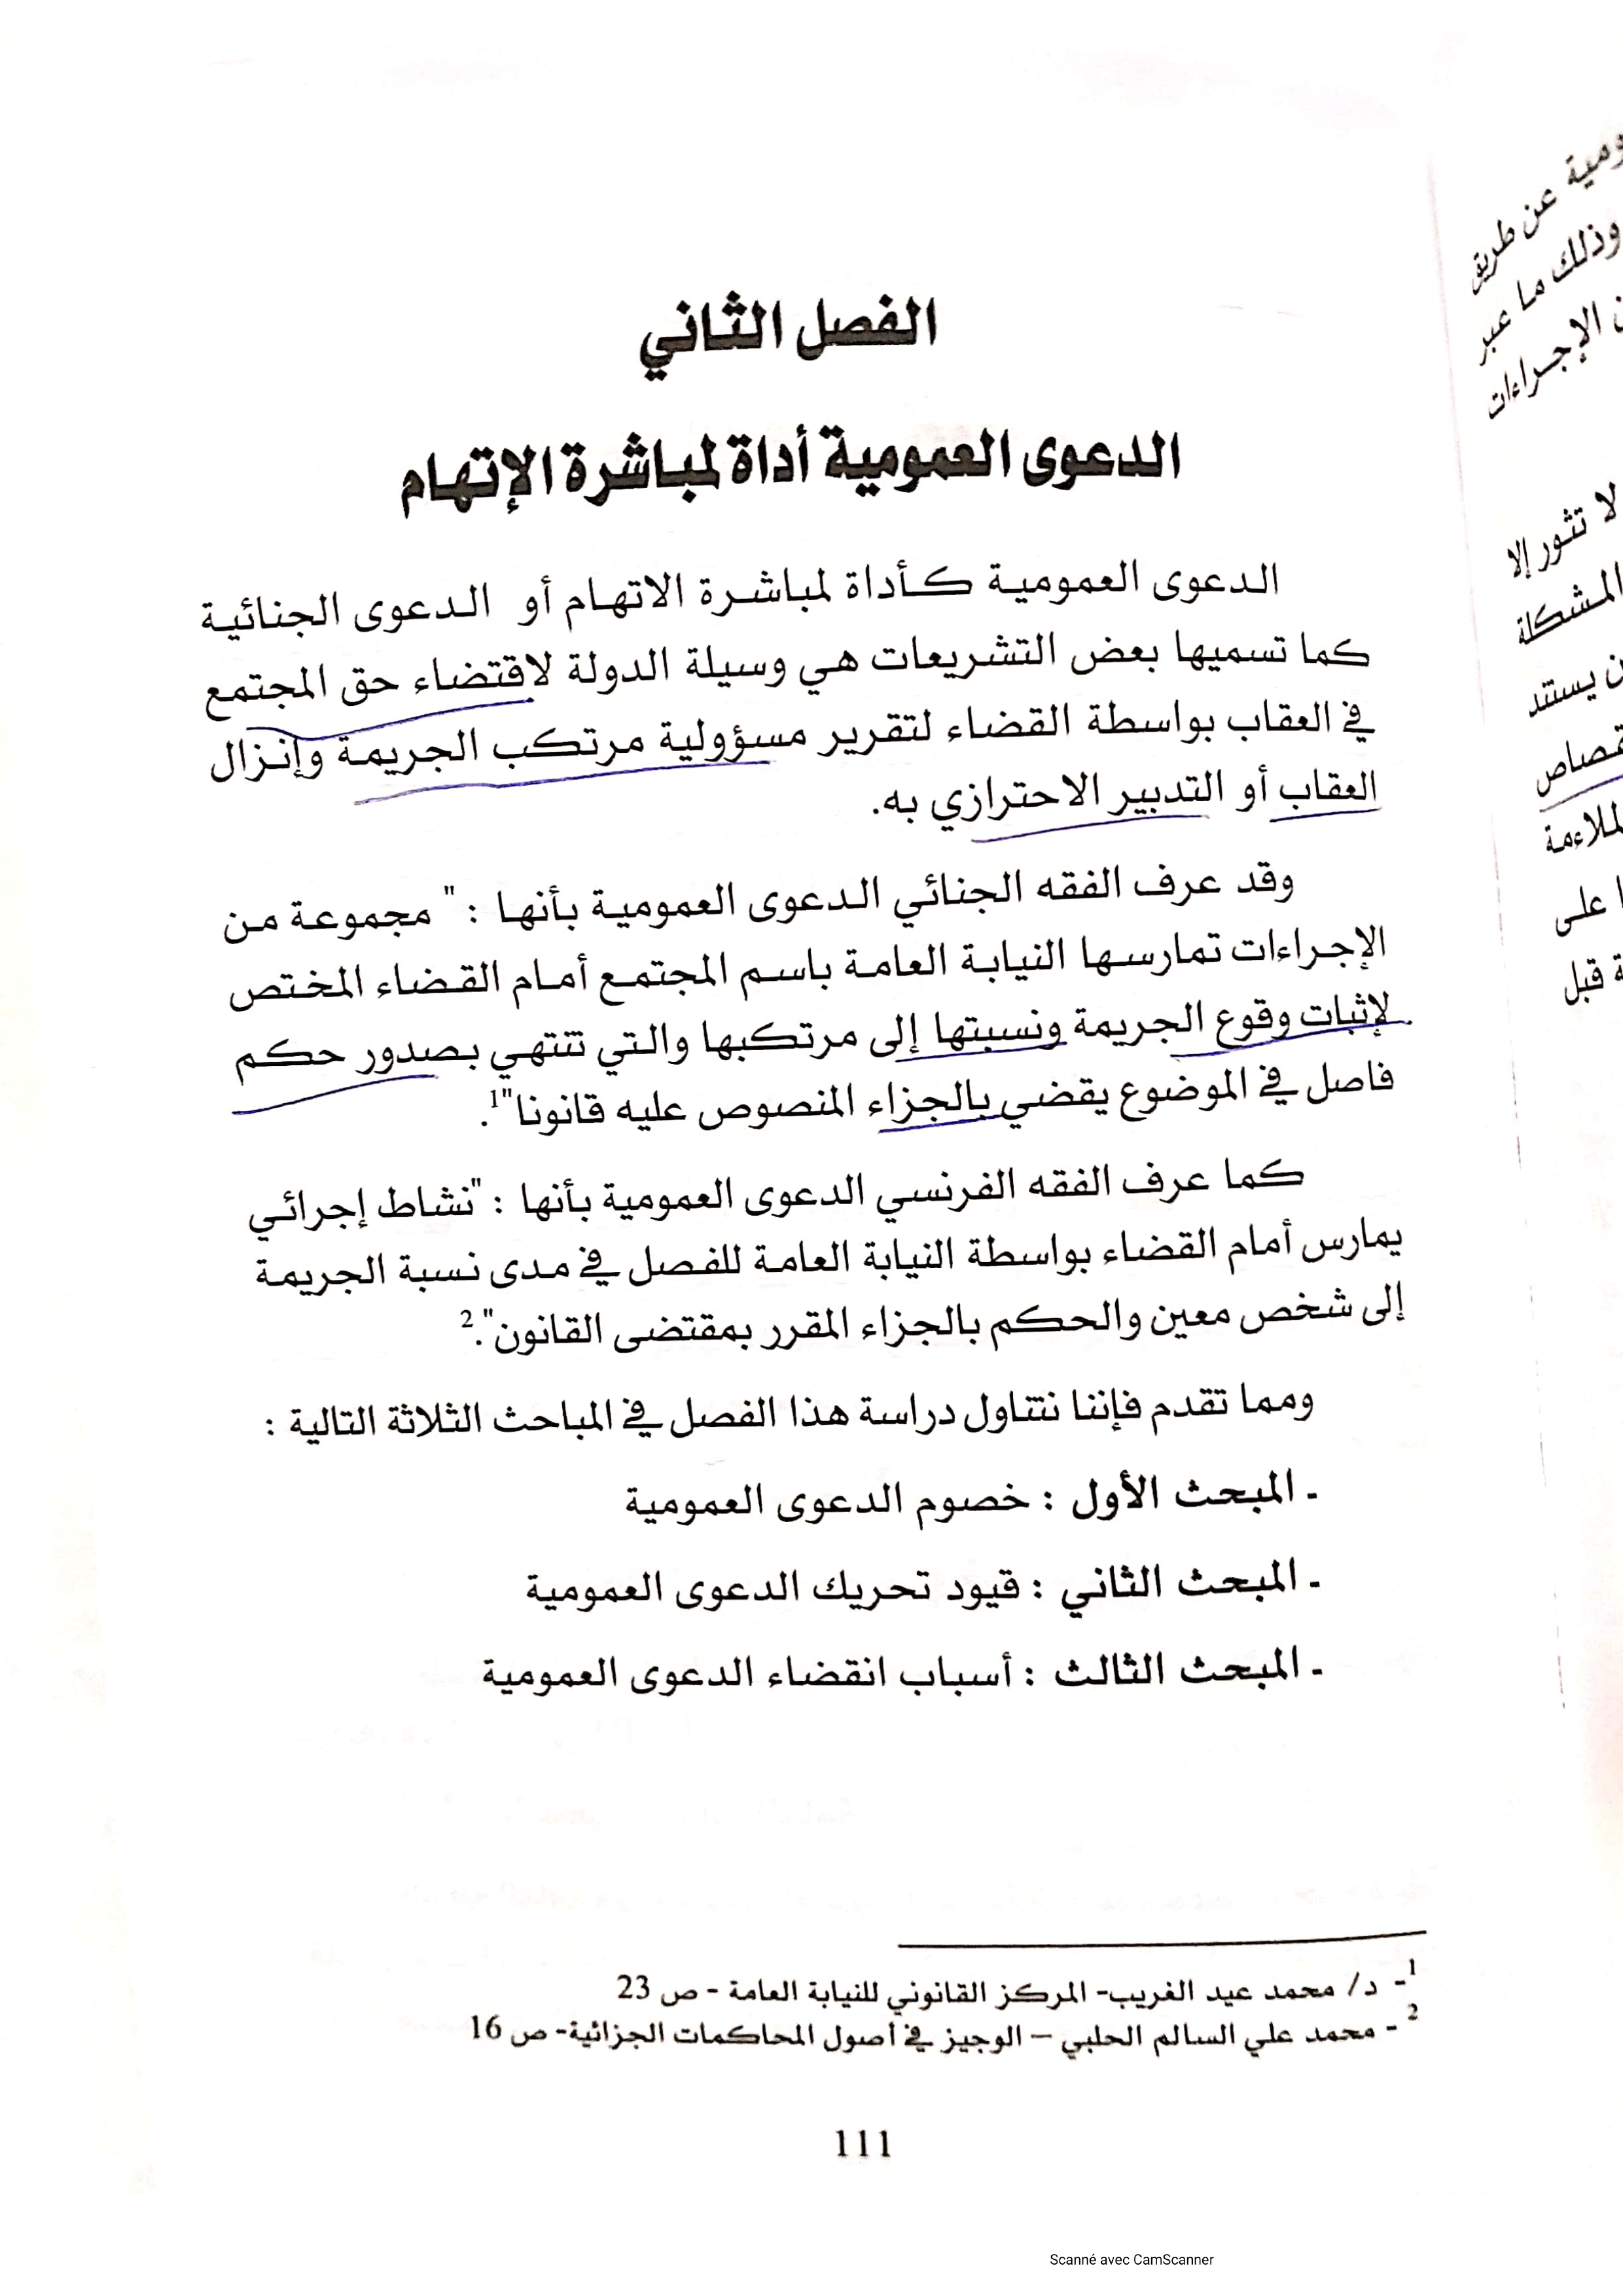 الفصل الثاني
الدعوى العمومية أداة لمباشرة الإتهام
الدعوى العمومية كأداة لمباشرة الاتهام أو الدعوى الجنائية
كما تسميها بعض التشريعات هي وسيلة الدولة لاقتضاء حق المجتمع
في العقاب بواسطة القضاء لتقرير مسؤولية مرتكب الجريمة وإنزال
العقاب أو التدبير الاحترازي به.
وقد عرف الفقه الجنائي الدعوى العمومية بأنها : " مجموعة من
الإجراءات تمارسها النيابة العامة باسم المجتمع أمام القضاء المختص
لإثبات وقوع الجريمة ونسبتها إلى مرتكبها والتي تنتهي بصدور حكم
فاصل في الموضوع يقضي بالجزاء المنصوص عليه قانونا"1.
كما عرف الفقه الفرنسي الدعوى العمومية بأنها : "نشاط إجرائي
يمارس أمام القضاء بواسطة النيابة العامة للفصل في مدى نسبة الجريمة
إلى شخص معين والحكم بالجزاء المقرر بمقتضى القانون".2
ومما تقدم فإننا نتناول دراسة هذا الفصل في المباحث الثلاثة التالية :
- المبحث الأول : خصوم الدعوى العمومية
- المبحث الثاني : قيود تحريك الدعوى العمومية
- المبحث الثالث : أسباب انقضاء الدعوى العمومية
1- د/ محمد عيد الغريب- المركز القانوني للنيابة العامة - ص 23
2 - محمد علي السالم الحلبي – الوجيز في أصول المحاكمات الجزائية- ص 16
111
عن طريق
وذلك ما عبر
الإجراءات
لا تثور إلا
المشكلة
يستند
على
قبل
Scanné avec CamScanner